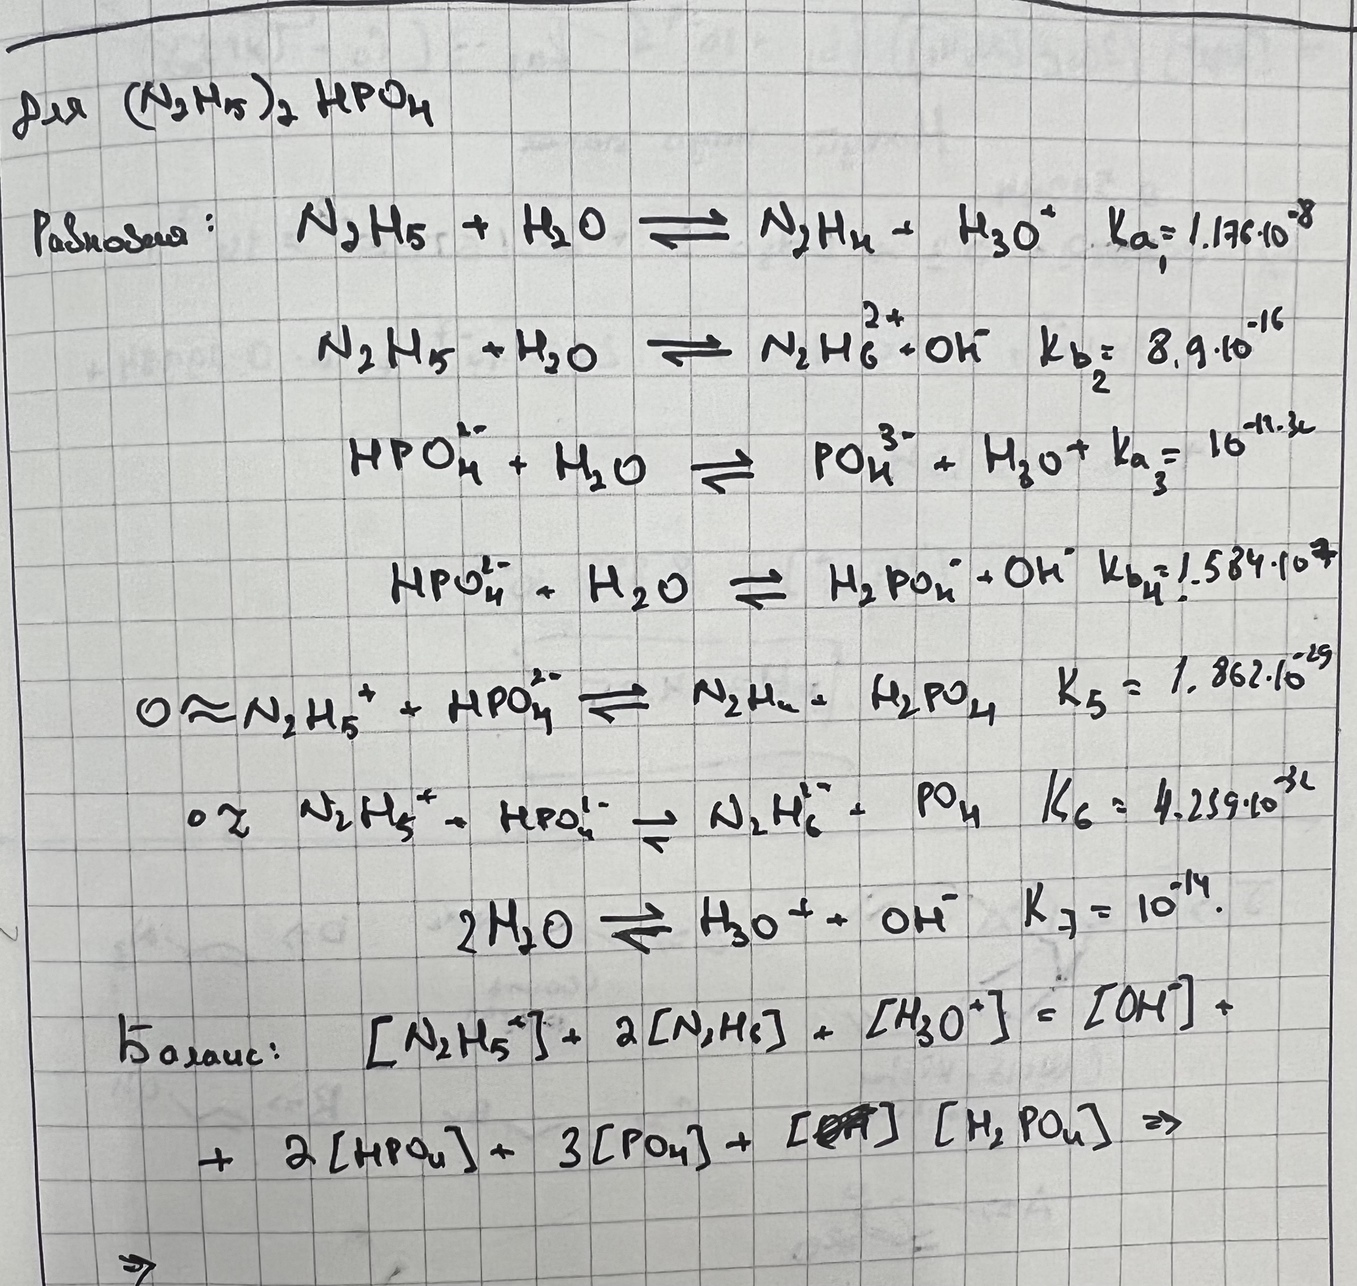 Для (N₂H₅)₂ HPO₄
Равновесия: N₂H₅ + H₂O ⇌ N₂H₄ + H₃O⁺ Ka₁ = 1.176·10⁻⁸
N₂H₅ + H₂O ⇌ N₂H₆²⁺ + OH⁻ Kb₂ = 8.9·10⁻¹⁶
HPO₄²⁻ + H₂O ⇌ PO₄³⁻ + H₃O⁺ Ka₃ = 10⁻¹²·³²
HPO₄²⁻ + H₂O ⇌ H₂PO₄⁻ + OH⁻ Kb₄ = 1.584·10⁻⁷
0 ≈ N₂H₅⁺ + HPO₄²⁻ ⇌ N₂H₄ + H₂PO₄ K₅ = 1.862·10⁻²⁹
0 ≈ N₂H₅⁺ + HPO₄²⁻ ⇌ N₂H₆²⁻ + PO₄ K₆ = 4.259·10⁻³²
2H₂O ⇌ H₃O⁺ + OH⁻ K₇ = 10⁻¹⁴.
Баланс: [N₂H₅⁺] + 2[N₂H₆] + [H₃O⁺] = [OH⁻] +
+ 2[HPO₄] + 3[PO₄] + [H₂PO₄] ⇒
⇒